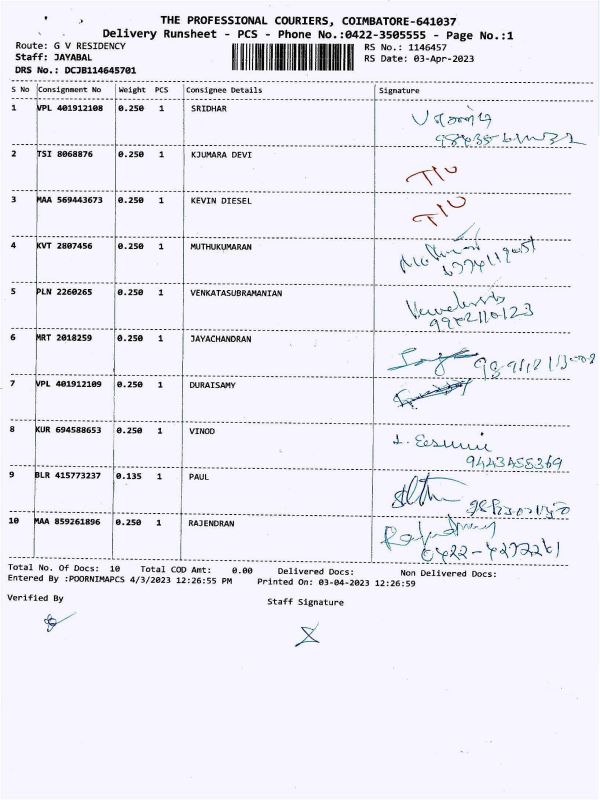 THE PROFESSIONAL COURIERS, COIMBATORE-641037
Delivery Runsheet - PCS - Phone No.:0422-3505555 - Page No.:1
Route: G V RESIDENCY RS No.: 1146457
Staff: JAYABAL RS Date: 03-Apr-2023
DRS No.: DCJB114645701
S No Consignment No Weight PCS Consignee Details Signature
1 VPL 401912108 0.250 1 SRIDHAR
2 TSI 8068876 0.250 1 KJUMARA DEVI
3 MAA 569443673 0.250 1 KEVIN DIESEL
4 KVT 2807456 0.250 1 MUTHUKUMARAN
5 PLN 2260265 0.250 1 VENKATASUBRAMANIAN
6 MRT 2018259 0.250 1 JAYACHANDRAN
7 VPL 401912109 0.250 1 DURAISAMY
8 KUR 694588653 0.250 1 VINOD
9 BLR 415773237 0.135 1 PAUL
10 MAA 859261896 0.250 1 RAJENDRAN
Total No. Of Docs: 10 Total COD Amt: 0.00 Delivered Docs: Non Delivered Docs:
Entered By :POORNIMAPCS 4/3/2023 12:26:55 PM Printed On: 03-04-2023 12:26:59
Verified By Staff Signature